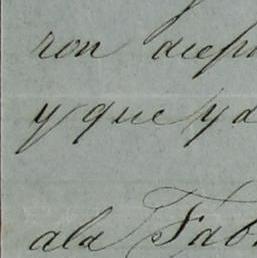 ron
y que y
ala Fab